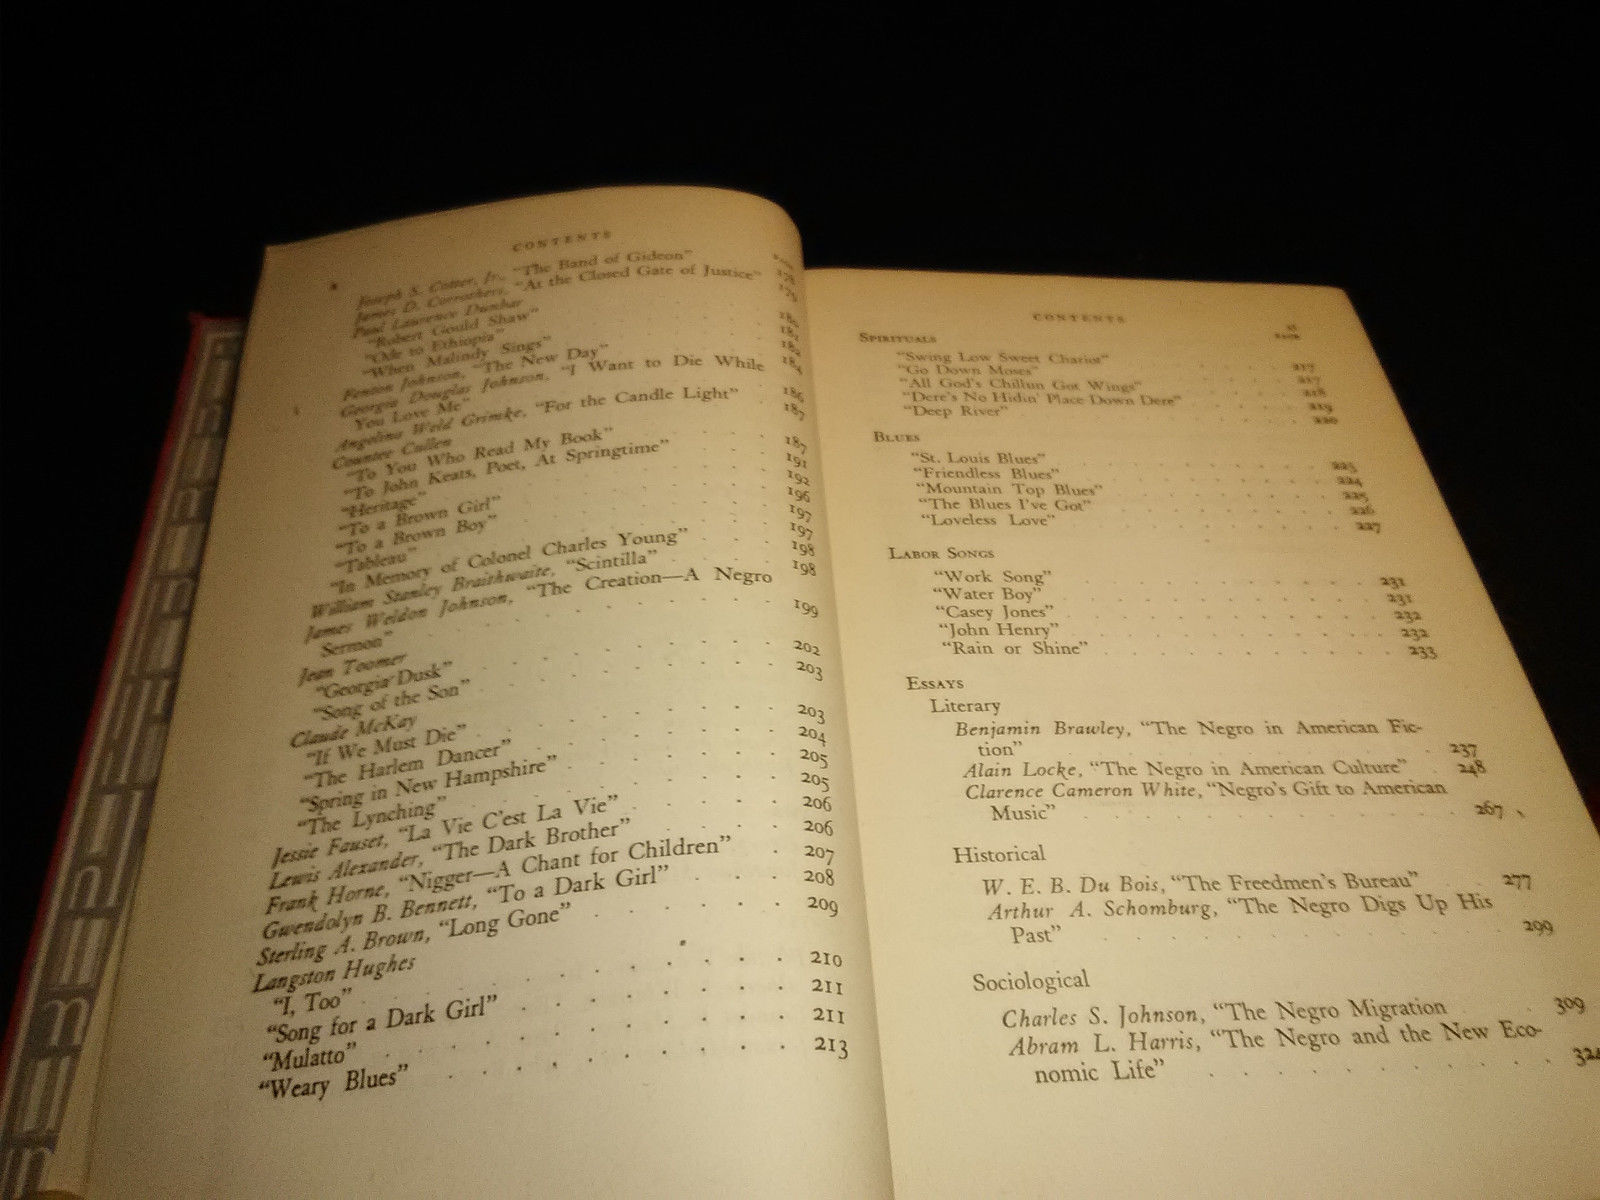 CONTENTS
Joseph S. Cotter, Jr., "The Band of Gideon" 178
James D. Corrothers, "At the Closed Gate of Justice" 179
Paul Laurence Dunbar
"Robert Gould Shaw" . . . .
"Ode to Ethiopia" . . . . 181
"When Malindy Sings" . . . . 182
Fenton Johnson, "The New Day" . . . 184
Georgia Douglas Johnson, "I Want to Die While
You Love Me" . . . . 186
Angelina Weld Grimke, "For the Candle Light" . 187
Countee Cullen
"To You Who Read My Book" . . . 187
"To John Keats, Poet, At Springtime" . . 191
"Heritage" . . . . 192
"To a Brown Girl" . . . . 196
"To a Brown Boy" . . . . 197
"Tableau" . . . . 197
"In Memory of Colonel Charles Young" . . 198
William Stanley Braithwaite, "Scintilla" . . . 198
James Weldon Johnson, "The Creation—A Negro
Sermon" . . . . 199
Jean Toomer
"Georgia Dusk" . . . . 202
"Song of the Son" . . . . 203
Claude McKay
"If We Must Die" . . . . 203
"The Harlem Dancer" . . . . 204
"Spring in New Hampshire" . . . . 205
"The Lynching" . . . . 205
Jessie Fauset, "La Vie C'est La Vie" . . . . 206
Lewis Alexander, "The Dark Brother" . . . . 206
Frank Horne, "Nigger—A Chant for Children" . 207
Gwendolyn B. Bennett, "To a Dark Girl" . . . 208
Sterling A. Brown, "Long Gone" . . . . 209
Langston Hughes
"I, Too" . . . . 210
"Song for a Dark Girl" . . . . 211
"Mulatto" . . . . 211
"Weary Blues" . . . . 213
CONTENTS
PAGE
SPIRITUALS
"Swing Low Sweet Chariot" . . . . 217
"Go Down Moses" . . . . 217
"All God's Chillun Got Wings" . . . . 218
"Dere's No Hidin' Place Down Dere" . . . . 219
"Deep River" . . . . 220
BLUES
"St. Louis Blues" . . . . 223
"Friendless Blues" . . . . 224
"Mountain Top Blues" . . . . 225
"The Blues I've Got" . . . . 226
"Loveless Love" . . . . 227
LABOR SONGS
"Work Song" . . . . 231
"Water Boy" . . . . 231
"Casey Jones" . . . . 232
"John Henry" . . . . 232
"Rain or Shine" . . . . 233
ESSAYS
Literary
Benjamin Brawley, "The Negro in American Fic-
tion" . . . . 237
Alain Locke, "The Negro in American Culture" . 248
Clarence Cameron White, "Negro's Gift to American
Music" . . . . 267
Historical
W. E. B. Du Bois, "The Freedmen's Bureau" . . 277
Arthur A. Schomburg, "The Negro Digs Up His
Past" . . . . 299
Sociological
Charles S. Johnson, "The Negro Migration . 309
Abram L. Harris, "The Negro and the New Eco-
nomic Life" . . . . 324